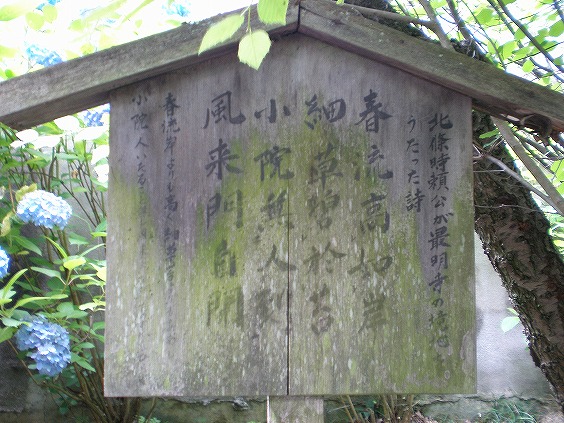 北條時頼公が最明寺の境地を
うたった詩
春流高如岸
細草碧於苔
小院無人到
風来門自開
春流岸よりも高く細草苔よりも
小院人いたる